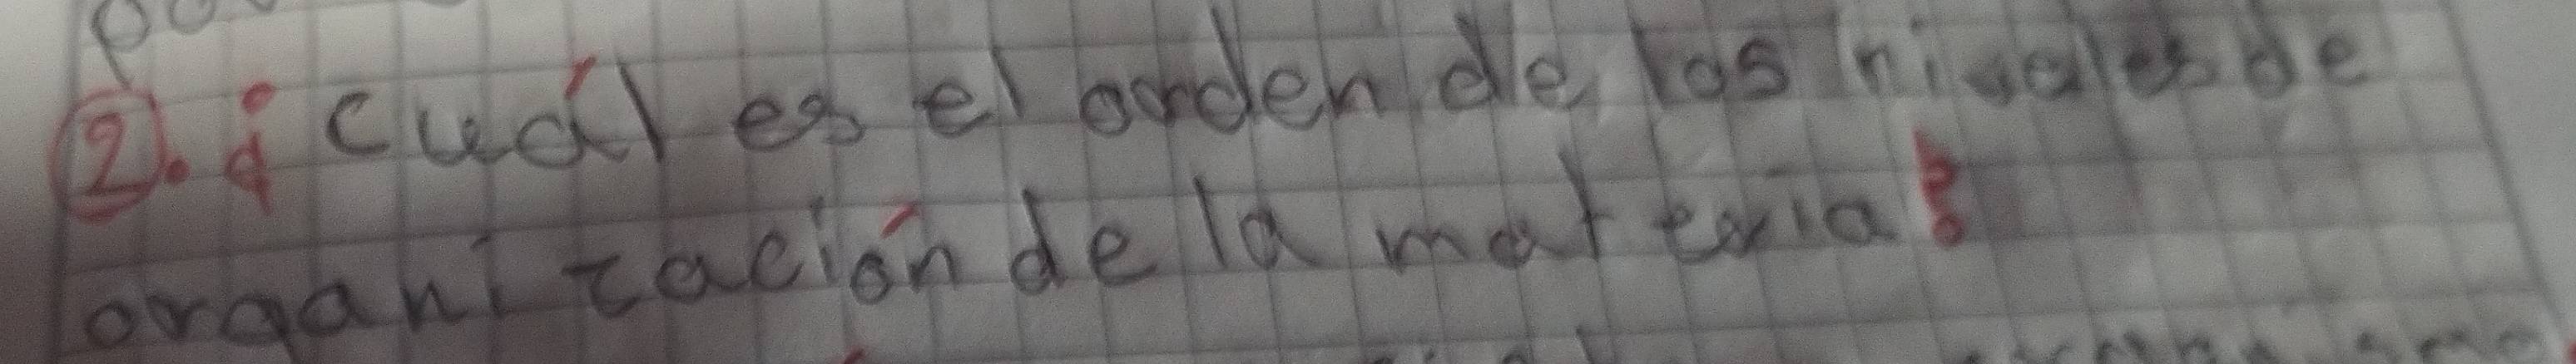 2. ¿cuál es el orden de los niveles de
organización de la materia?